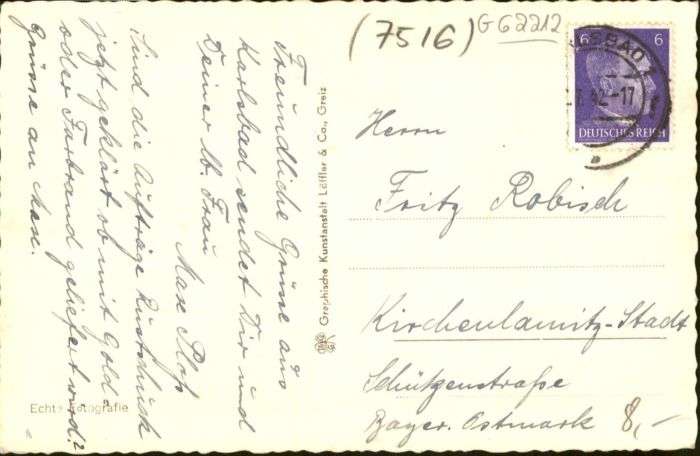 (7516) G 62212
6 6
DEUTSCHES REICH
LSBAD 1
42-17
Freundliche Grüsse aus
Karlsbad sendet Dir und
Deiner lb. Frau
Max
Sind die Aufträge
jetzt geklärt ob mit Gold-
oder Farbrand geliefert wird?
Grüsse an Max.
Echte Fotografie
Graphische Kunstanstalt Löffler & Co., Greiz
Herrn
Fritz Robisch
Kirchenlamitz-Stadt
Schützenstraße
Bayer. Ostmark 8,-